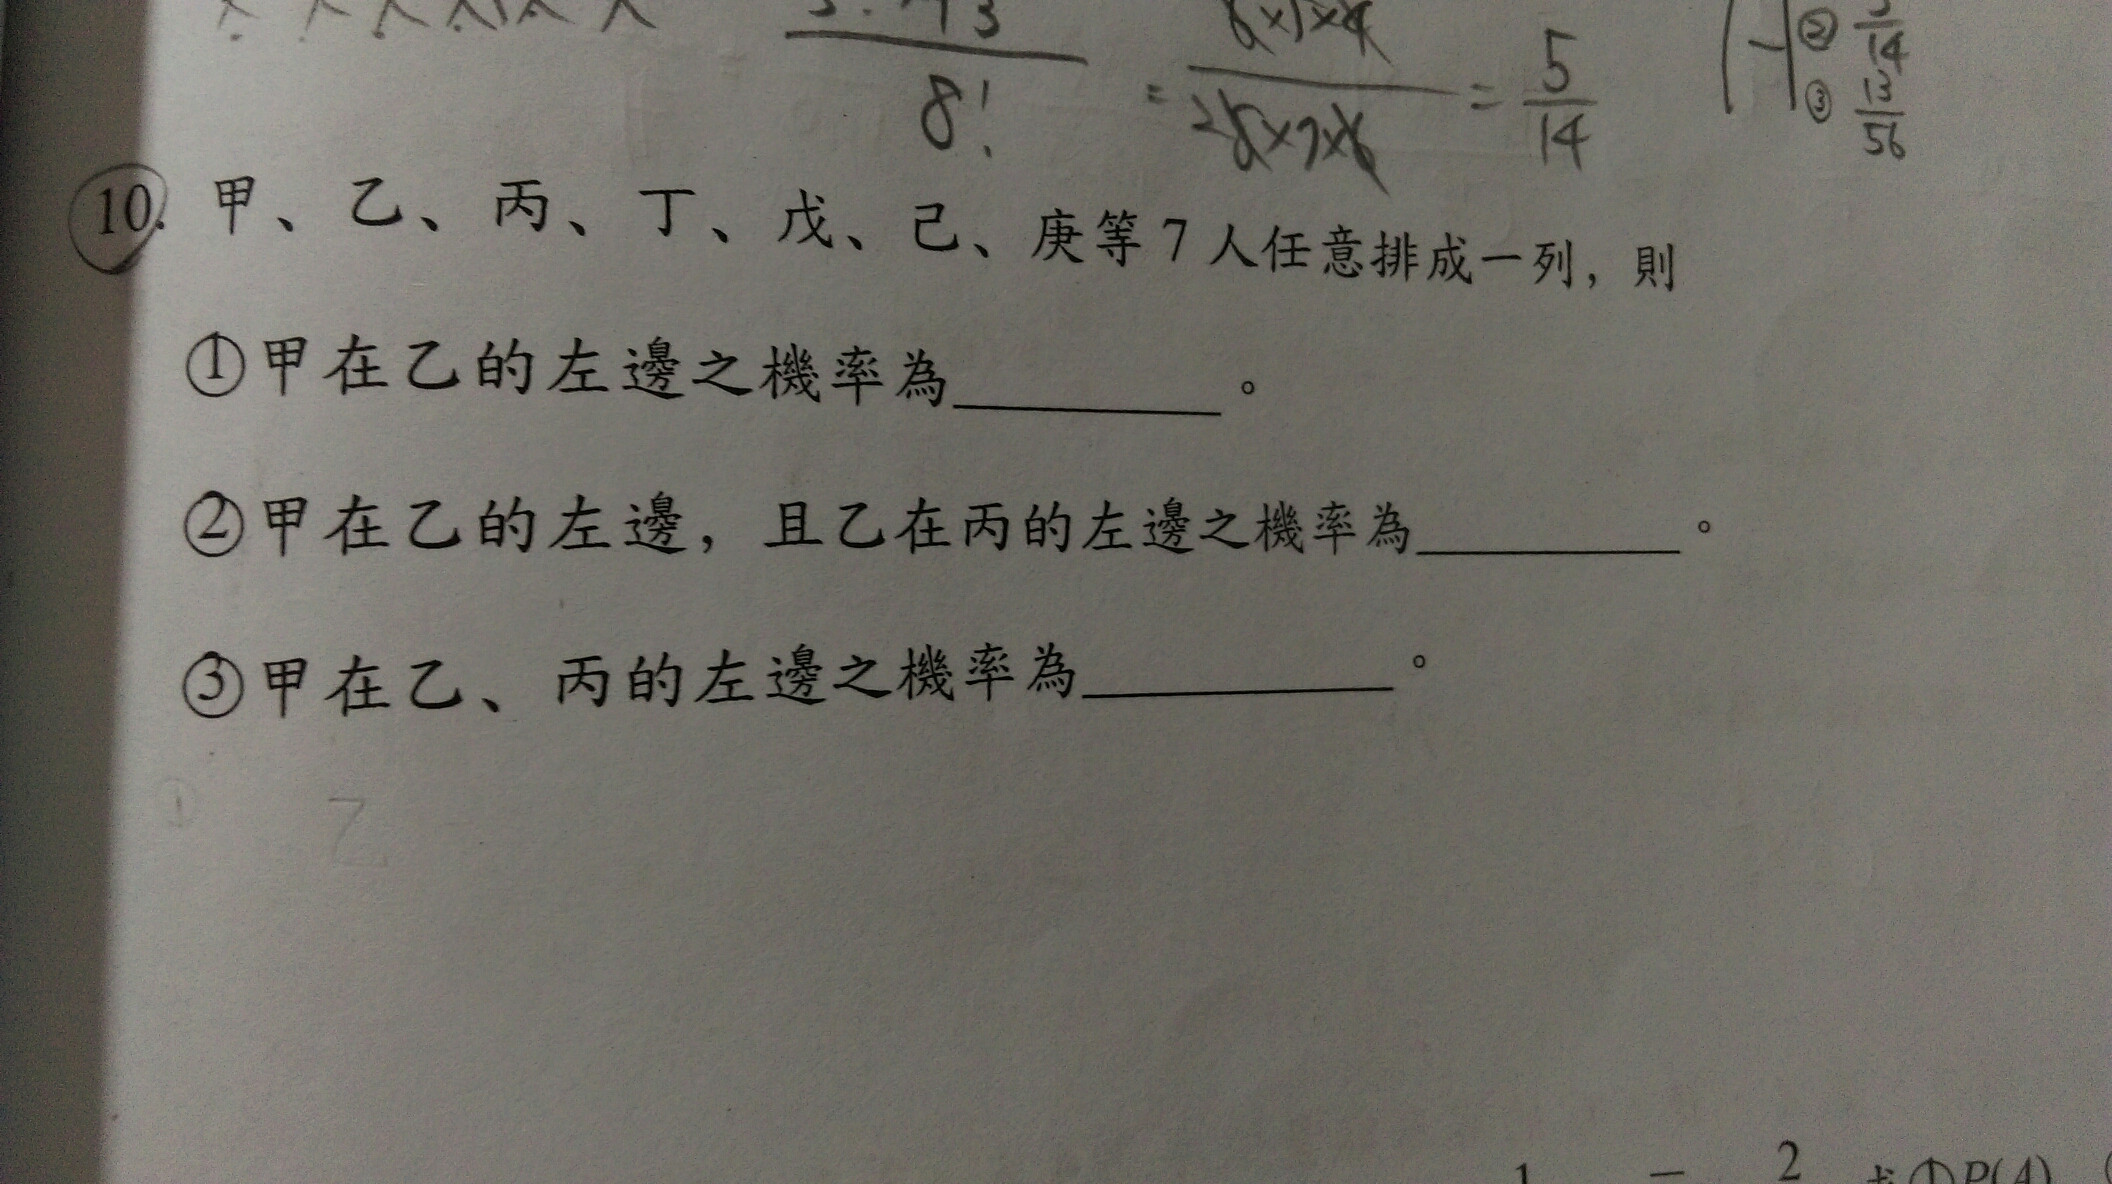 8! = 28×7×6 = 5/14
② 14
③ 13/56
10. 甲、乙、丙、丁、戊、己、庚等 7 人任意排成一列，則
①甲在乙的左邊之機率為________。
②甲在乙的左邊，且乙在丙的左邊之機率為________。
③甲在乙、丙的左邊之機率為________。
① 乙
①P(A)